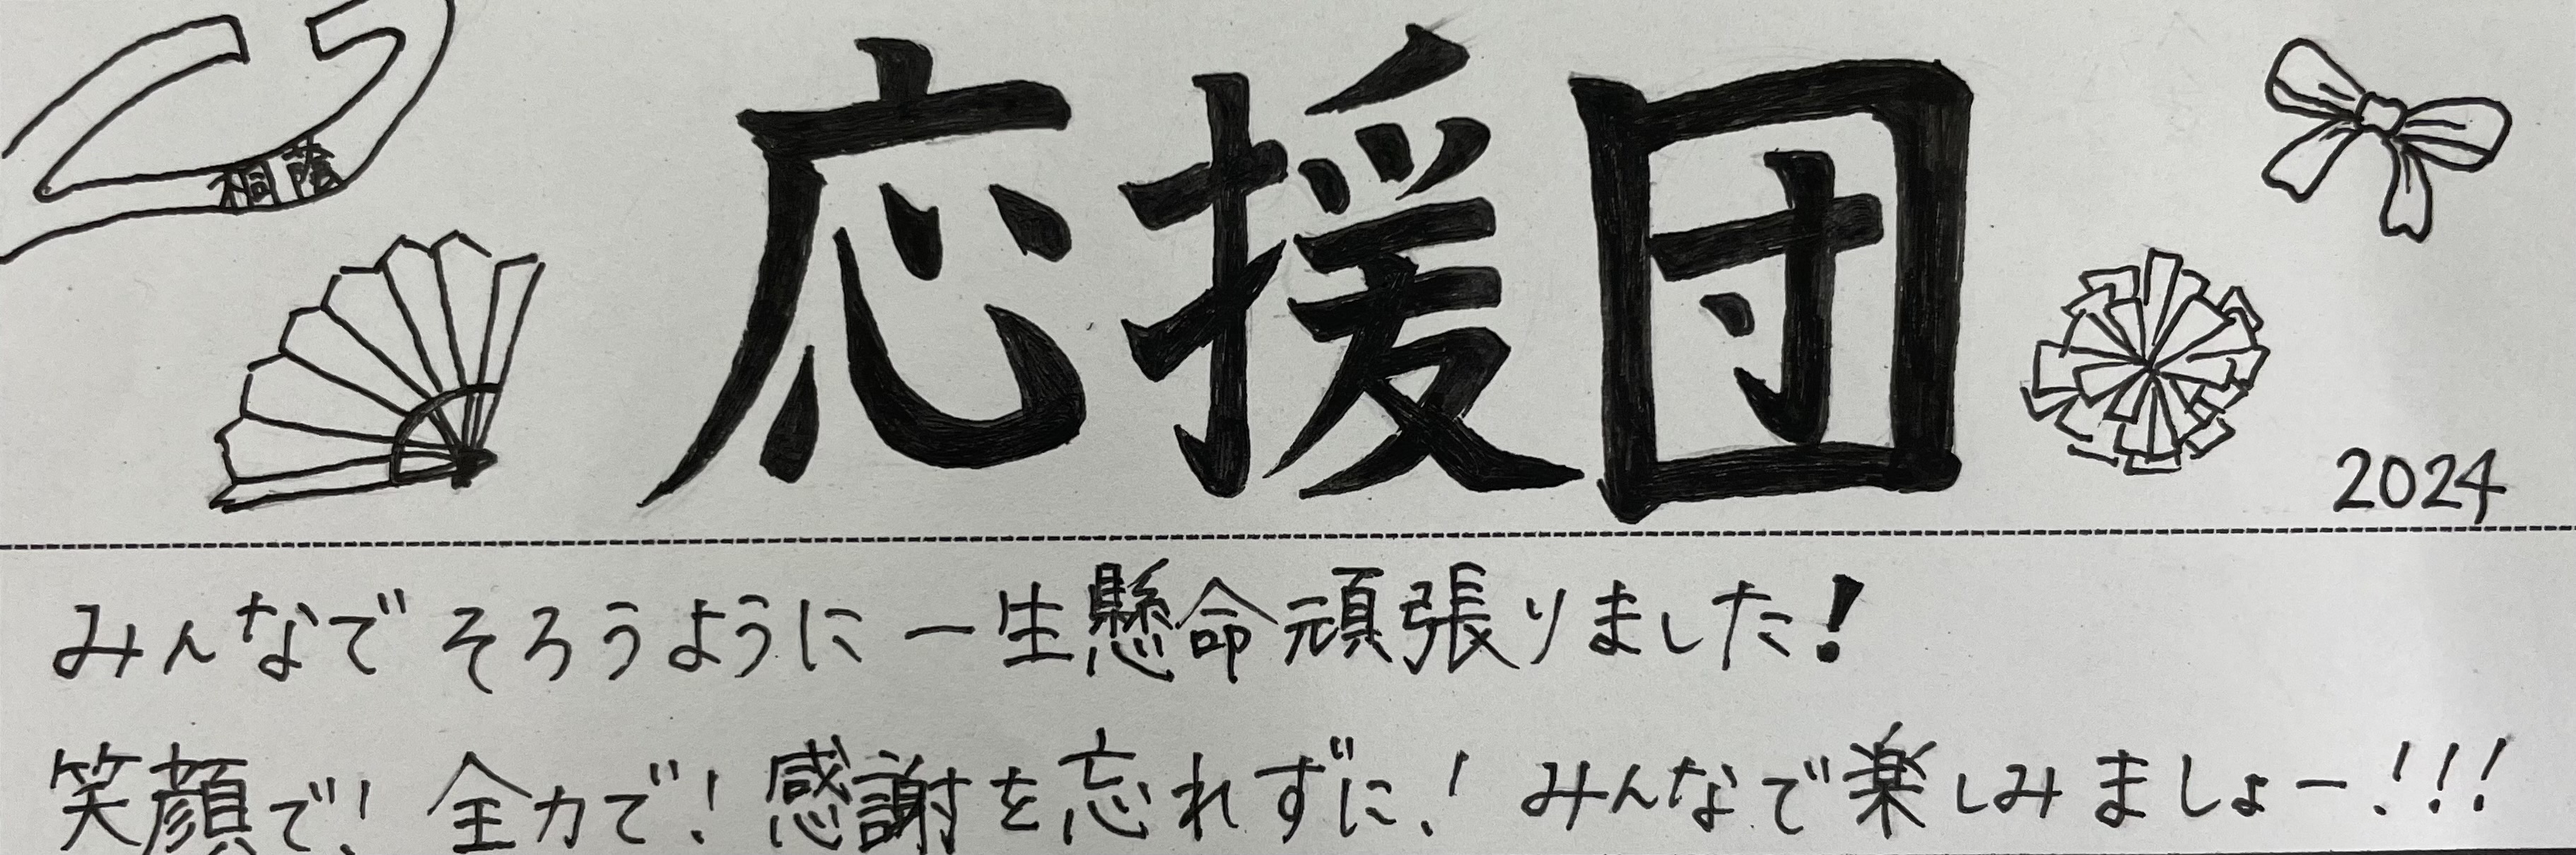 桐蔭
応援団
2024
みんなでそろうように一生懸命頑張りました!
笑顔で! 全力で! 感謝を忘れずに! みんなで楽しみましょー!!!